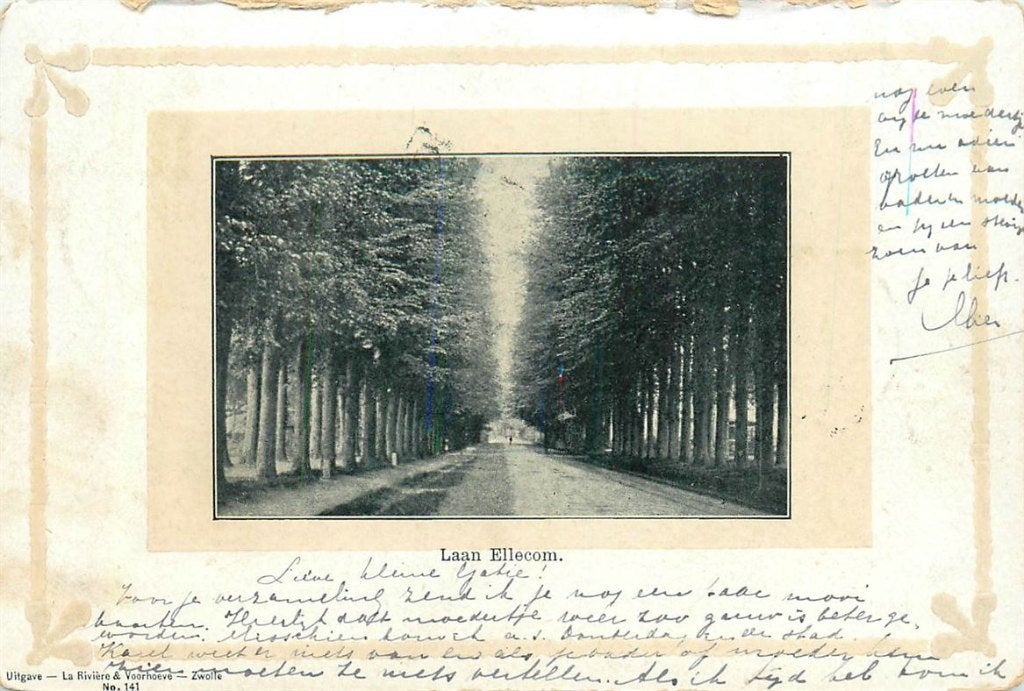 Laan Ellecom.
Lieve kleine
Voor je verzameling zend ik je nog een paar mooi
kaarten. Heerlijk dat moedertje weer zoo gauw is beter ge
worden. Misschien kom ik a.s. Donderdag in de stad.
Karel weet er niets van en als je vader of moeder hem
zien moeten ze niets vertellen. Als ik tijd heb kom ik
nog even
op je moedertje
En nu adieu
groeten van
vader en moeder
en bij een stevig
zoen van
Je je liefh.
Mies
Uitgave — La Rivière & Voorhoeve — Zwolle
No. 141